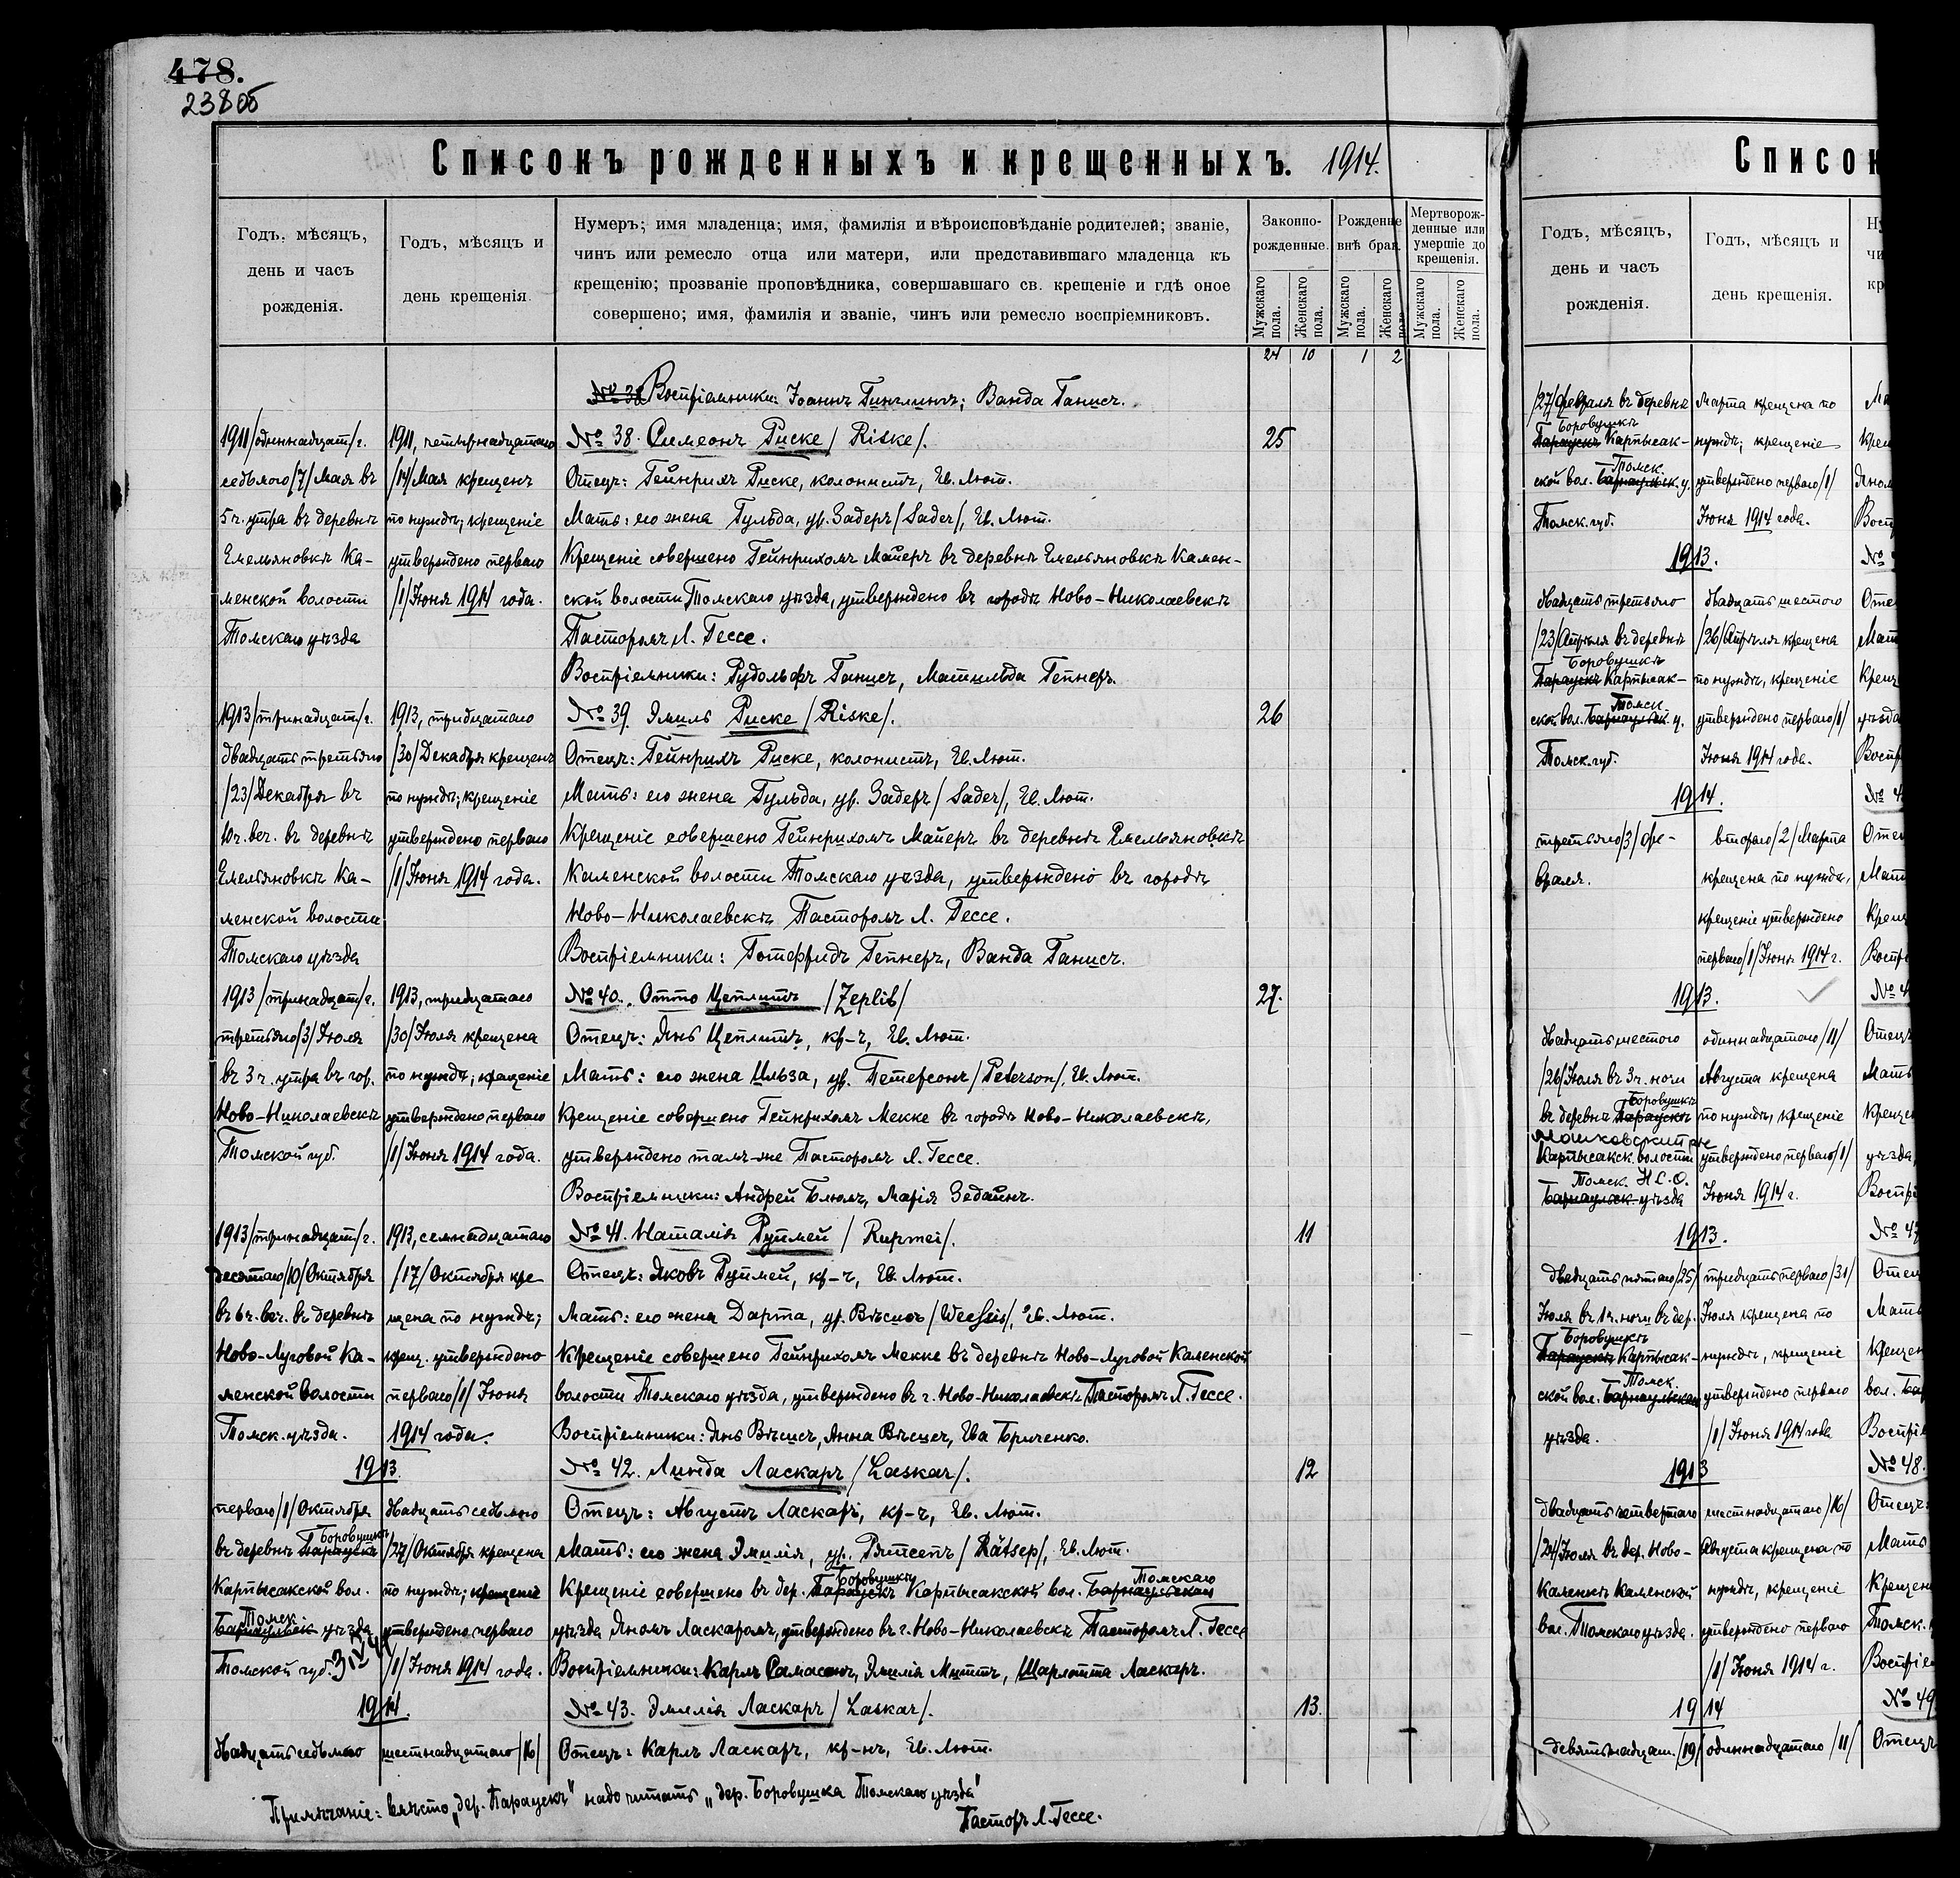 478.
238об
Списокъ рожденныхъ и крещенныхъ. 1914.
Годъ, мѣсяцъ,
день и часъ
рожденія.
Годъ, мѣсяцъ и
день крещенія.
Нумеръ; имя младенца; имя, фамилія и вѣроисповѣданіе родителей; званіе,
чинъ или ремесло отца или матери, или представившаго младенца къ
крещенію; прозваніе проповѣдника, совершавшаго св. крещеніе и гдѣ оное
совершено; имя, фамилія и званіе, чинъ или ремесло воспріемниковъ.
Законно-
рожденные.
Рожденные
внѣ брак.
Мертворож-
денные или
умершіе до
крещенія.
Мужскаго пола.
Женскаго пола.
Мужскаго пола.
Женскаго пола.
Мужскаго пола.
Женскаго пола.
24 10 1 2
№ 38 Воспріемники: Іоаннъ ; Ванда Ганисъ.
1911/одиннадцат/г.
седьмого/7/ Мая въ
5 ч. утра въ деревнѣ
Емельяновкѣ Ка-
менской волости
Томскаго уѣзда
1911, четырнадцатаго
/14/ Мая крещенъ
по нуждѣ; крещеніе
утверждено перваго
/1/ Іюня 1914 года.
№ 38. Симеонъ Риске /Riske/. 25
Отецъ: Гейнрихъ Риске, колонистъ, Ев. Лют.
Мать: его жена Гульда, ур. Задеръ /Sader/, Ев. Лют.
Крещеніе совершено Гейнрихомъ Майеръ въ деревнѣ Емельяновкѣ Камен-
ской волости Томскаго уѣзда, утверждено въ городѣ Ново-Николаевскѣ
Пасторомъ Л. Гессе.
Воспріемники: Рудольфъ Ганисъ, Матильда Гепнеръ.
1913/тринадцат/г.
двадцать третьяго
/23/ Декабря въ
10 ч. веч. въ деревнѣ
Емельяновкѣ Ка-
менской волости
Томскаго уѣзда
1913, тридцатаго
/30/ Декабря крещенъ
по нуждѣ; крещеніе
утверждено перваго
/1/ Іюня 1914 года.
№ 39. Эмиль Риске /Riske/. 26
Отецъ: Гейнрихъ Риске, колонистъ, Ев. Лют.
Мать: его жена Гульда, ур. Задеръ /Sader/, Ев. Лют.
Крещеніе совершено Гейнрихомъ Майеръ въ деревнѣ Емельяновкѣ
Каменской волости Томскаго уѣзда, утверждено въ городѣ
Ново-Николаевскѣ Пасторомъ Л. Гессе.
Воспріемники: Готфридъ Гепнеръ, Ванда Ганисъ.
1913/тринадцат/г.
третьяго/3/ Іюля
въ 3 ч. утра въ гор.
Ново-Николаевскѣ
Томской губ.
1913, тридцатаго
/30/ Іюля крещена
по нуждѣ; крещеніе
утверждено перваго
/1/ Іюня 1914 года.
№ 40. Отто Цеплитъ /Zeplit/ 27.
Отецъ: Янъ Цеплитъ, кр-ъ, Ев. Лют.
Мать: его жена Ильза, ур. Петерсонъ /Peterson/, Ев. Лют.
Крещеніе совершено Гейнрихомъ Мекке въ городѣ Ново-Николаевскѣ,
утверждено тамъ-же Пасторомъ Л. Гессе.
Воспріемники: Андрей Блюмъ, Марія Зедайнъ.
1913/тринадцат/г.
десятаго/10/ Октября
въ 6 ч. веч. въ деревнѣ
Ново-Луговой Ка-
менской волости
Томск. уѣзда.
1913, семнадцатаго
/17/ Октября кре
щена по нуждѣ;
крещ. утверждено
перваго/1/ Іюня
1914 года.
№ 41. Наталія Рупмей /Rupmei/. 11
Отецъ: Яковъ Рупмей, кр-ъ, Ев. Лют.
Мать: его жена Дарта, ур. Вѣсисъ /Weessis/, Ев. Лют.
Крещеніе совершено Гейнрихомъ Мекке въ деревнѣ Ново-Луговой Каменской
волости Томскаго уѣзда, утверждено въ г. Ново-Николаевскѣ Пасторомъ Л. Гессе.
Воспріемники: Янъ Вѣсисъ, Анна Вѣсисъ, Ева Бриченко.
1913.
перваго/1/ Октября
въ деревнѣ Параускъ Боровушкѣ
Карпысакской вол.
Барнаульск. Томск уѣзда
Томской губ.
двадцать седьмого
/27/ Октября крещена
по нуждѣ; крещеніе
утверждено перваго
/1/ Іюня 1914 года.
№ 42. Линда Ласкаръ /Laskar/. 12
Отецъ: Августъ Ласкаръ, кр-ъ, Ев. Лют.
Мать: его жена Эмилія, ур. Рятсепъ /Rätsep/, Ев. Лют.
Крещеніе совершено въ дер. Параускъ Боровушкѣ Карпысакской вол. Барнаульскаго Томскаго
уѣзда Яномъ Ласкаромъ, утверждено въ г. Ново-Николаевскѣ Пасторомъ Л. Гессе
Воспріемники: Карлъ Самасонъ, Эмилія Миттъ, Шарлотта Ласкаръ.
1914.
двадцать седьмого
шестнадцатаго /16/
№ 43. Эмилія Ласкаръ /Laskar/. 13.
Отецъ: Карлъ Ласкаръ, кр-нъ, Ев. Лют.
Примѣчаніе: вмѣсто „дер. Параускъ" надо читать „дер. Боровушка Томскаго уѣзда"
Пасторъ Л. Гессе.
Список
Годъ, мѣсяцъ,
день и часъ
рожденія.
Годъ, мѣсяцъ и
день крещенія.
/27/ Февраля въ деревнѣ
Параускъ Боровушкѣ Карпысак-
ской вол. Барнаульск. Томск. у.
Томск. губ.
Марта крещена по
нуждѣ; крещеніе
утверждено перваго/1/
Іюня 1914 года.
1913.
двадцать третьяго
/23/ Апрѣля въ деревнѣ
Параускъ Боровушкѣ Карпысак-
ской вол. Барнаульск. Томск. у.
Томск. губ.
двадцать шестого
/26/ Апрѣля крещена
по нуждѣ, крещеніе
утверждено перваго/1/
Іюня 1914 года.
1914.
третьяго/3/ Фе-
враля.
второго/2/ Марта
крещена по нуждѣ,
крещеніе утверждено
перваго/1/ Іюня 1914 г.
1913.
двадцать шестого
/26/ Іюля въ 3 ч. ночи
въ деревнѣ Параускъ Боровушкѣ
Мошковский р-не
Карпысакск. волости
Барнаульск. Томск. Н.С.О. уѣзда
одиннадцатаго/11/
Августа крещена
по нуждѣ, крещеніе
утверждено перваго/1/
Іюня 1914 г.
1913.
двадцать пятаго/25/
Іюля въ 1 ч. ночи въ дер.
Параускъ Боровушкѣ Карпысак-
ской вол. Барнаульскаго Томск.
уѣзда.
тридцать перваго/31/
Іюля крещена по
нуждѣ, крещеніе
утверждено перваго
/1/ Іюня 1914 года
1913
двадцать четвертаго
/24/ Іюля въ дер. Ново-
Каменкѣ Каменской
вол. Томскаго уѣзда.
шестнадцатаго/16/
Августа крещена по
нуждѣ, крещеніе
утверждено перваго
/1/ Іюня 1914 г.
№ 48.
1914
девятнадцат. /19/
одиннадцатаго /11/
№ 49
Отецъ